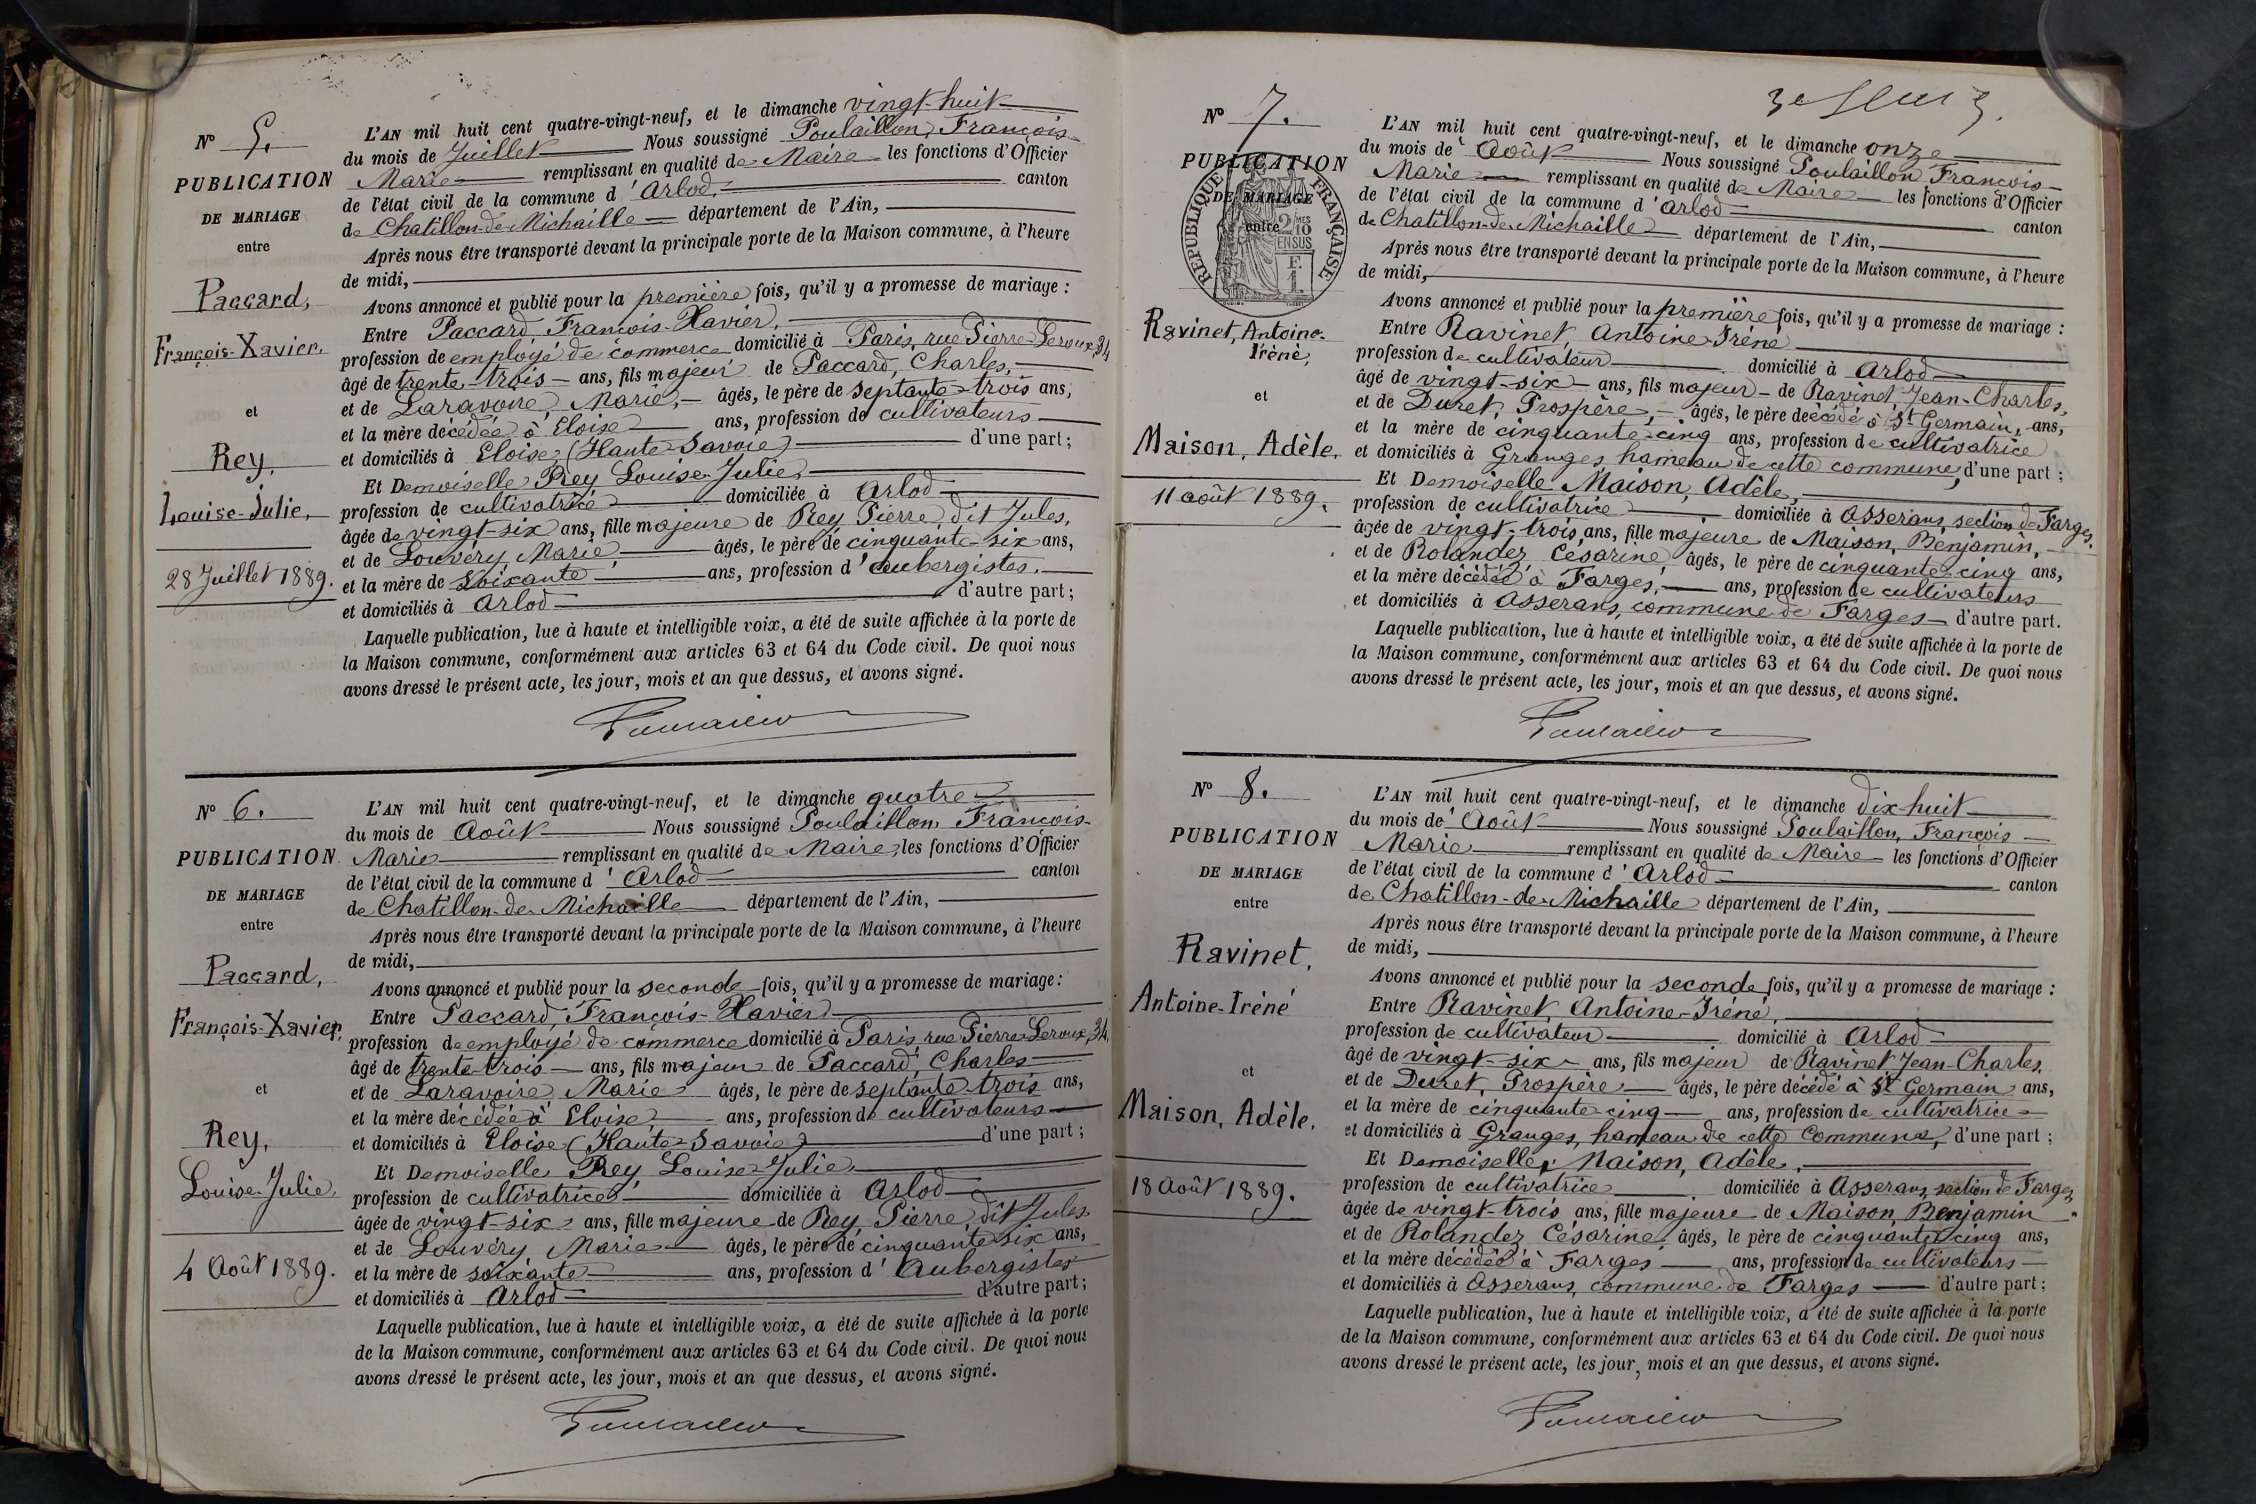 Nº 5.
PUBLICATION
DE MARIAGE
entre
Paccard,
François-Xavier,
et
Rey,
Louise-Julie,
28 Juillet 1889.
L'AN mil huit cent quatre-vingt-neuf, et le dimanche vingt-huit
du mois de Juillet Nous soussigné Poulaillon, François-
Marie remplissant en qualité de Maire les fonctions d'Officier
de l'état civil de la commune d'Arlod, canton
de Chatillon-de-Michaille département de l'Ain,
Après nous être transporté devant la principale porte de la Maison commune, à l'heure
de midi,
Avons annoncé et publié pour la première fois, qu'il y a promesse de mariage :
Entre Paccard, François-Xavier,
profession de employé de commerce domicilié à Paris, rue Pierre-Leroux, 34
âgé de trente-trois ans, fils majeur de Paccard, Charles,
et de Laravoire, Marie, âgés, le père de septante-trois ans,
et la mère décédée à Eloise ans, profession de cultivateurs
et domiciliés à Eloise (Haute-Savoie) d'une part ;
Et Demoiselle Rey Louise-Julie,
profession de cultivatrice domiciliée à Arlod
âgée de vingt-six ans, fille majeure de Rey Pierre, dit Jules,
et de Louvéry, Marie âgés, le père de cinquante-six ans,
et la mère de soixante ans, profession d'aubergistes.
et domiciliés à Arlod d'autre part ;
Laquelle publication, lue à haute et intelligible voix, a été de suite affichée à la porte de
la Maison commune, conformément aux articles 63 et 64 du Code civil. De quoi nous
avons dressé le présent acte, les jour, mois et an que dessus, et avons signé.
Nº 6.
PUBLICATION
DE MARIAGE
entre
Paccard,
François-Xavier,
et
Rey,
Louise-Julie,
4 Août 1889.
L'AN mil huit cent quatre-vingt-neuf, et le dimanche quatre
du mois de Août Nous soussigné Poulaillon, François-
Marie remplissant en qualité de Maire, les fonctions d'Officier
de l'état civil de la commune d'Arlod canton
de Chatillon-de-Michaille département de l'Ain,
Après nous être transporté devant la principale porte de la Maison commune, à l'heure
de midi,
Avons annoncé et publié pour la seconde fois, qu'il y a promesse de mariage :
Entre Paccard, François-Xavier
profession de employé de commerce domicilié à Paris, rue Pierre-Leroux, 34,
âgé de trente-trois ans, fils majeur de Paccard, Charles
et de Laravoire, Marie âgés, le père de septante-trois ans,
et la mère décédée à Eloise, ans, profession de cultivateurs
et domiciliés à Eloise (Haute-Savoie) d'une part ;
Et Demoiselle Rey, Louise-Julie,
profession de cultivatrice domiciliée à Arlod
âgée de vingt-six ans, fille majeure de Rey, Pierre, dit Jules
et de Louvéry, Marie âgés, le père de cinquante-six ans,
et la mère de soixante ans, profession d'Aubergistes
et domiciliés à Arlod d'autre part ;
Laquelle publication, lue à haute et intelligible voix, a été de suite affichée à la porte
de la Maison commune, conformément aux articles 63 et 64 du Code civil. De quoi nous
avons dressé le présent acte, les jour, mois et an que dessus, et avons signé.
Nº 7.
PUBLICATION
DE MARIAGE
entre
RÉPUBLIQUE FRANÇAISE
2/10
EN SUS
Ravinet, Antoine-
Iréné,
et
Maison, Adèle,
11 août 1889.
L'AN mil huit cent quatre-vingt-neuf, et le dimanche onze
du mois de Août Nous soussigné Poulaillon François-
Marie remplissant en qualité de Maire les fonctions d'Officier
de l'état civil de la commune d'Arlod canton
de Chatillon-de-Michaille département de l'Ain,
Après nous être transporté devant la principale porte de la Maison commune, à l'heure
de midi,
Avons annoncé et publié pour la première fois, qu'il y a promesse de mariage :
Entre Ravinet, Antoine-Iréné
profession de cultivateur domicilié à Arlod
âgé de vingt-six ans, fils majeur de Ravinet, Jean-Charles,
et de Duret, Prospère, âgés, le père décédé à St Germain, ans,
et la mère de cinquante-cinq ans, profession de cultivatrice
et domiciliés à Granges, hameau de cette commune, d'une part ;
Et Demoiselle Maison, Adèle,
profession de cultivatrice domiciliée à Asserans, section de Farges,
âgée de vingt-trois ans, fille majeure de Maison, Benjamin,
et de Rolandez Césarine, âgés, le père de cinquante-cinq ans,
et la mère décédée à Farges, ans, profession de cultivateurs
et domiciliés à Asserans, commune de Farges d'autre part.
Laquelle publication, lue à haute et intelligible voix, a été de suite affichée à la porte de
la Maison commune, conformément aux articles 63 et 64 du Code civil. De quoi nous
avons dressé le présent acte, les jour, mois et an que dessus, et avons signé.
Nº 8.
PUBLICATION
DE MARIAGE
entre
Ravinet,
Antoine-Iréné
et
Maison, Adèle,
18 Août 1889.
L'AN mil huit cent quatre-vingt-neuf, et le dimanche dix-huit
du mois de Août Nous soussigné Poulaillon, François
Marie remplissant en qualité de Maire les fonctions d'Officier
de l'état civil de la commune d'Arlod canton
de Chatillon-de-Michaille département de l'Ain,
Après nous être transporté devant la principale porte de la Maison commune, à l'heure
de midi,
Avons annoncé et publié pour la seconde fois, qu'il y a promesse de mariage :
Entre Ravinet, Antoine-Iréné,
profession de cultivateur domicilié à Arlod
âgé de vingt-six ans, fils majeur de Ravinet Jean-Charles,
et de Duret, Prospère âgés, le père décédé à St Germain ans,
et la mère de cinquante-cinq ans, profession de cultivatrice
et domiciliés à Granges, hameau de cette Commune, d'une part ;
Et Demoiselle, Maison, Adèle,
profession de cultivatrice domiciliée à Asserans, section de Farges,
âgée de vingt-trois ans, fille majeure de Maison, Benjamin
et de Rolandez Césarine, âgés, le père de cinquante-cinq ans,
et la mère décédée à Farges ans, profession de cultivateurs
et domiciliés à Asserans, commune de Farges d'autre part ;
Laquelle publication, lue à haute et intelligible voix, a été de suite affichée à la porte
de la Maison commune, conformément aux articles 63 et 64 du Code civil. De quoi nous
avons dressé le présent acte, les jour, mois et an que dessus, et avons signé.